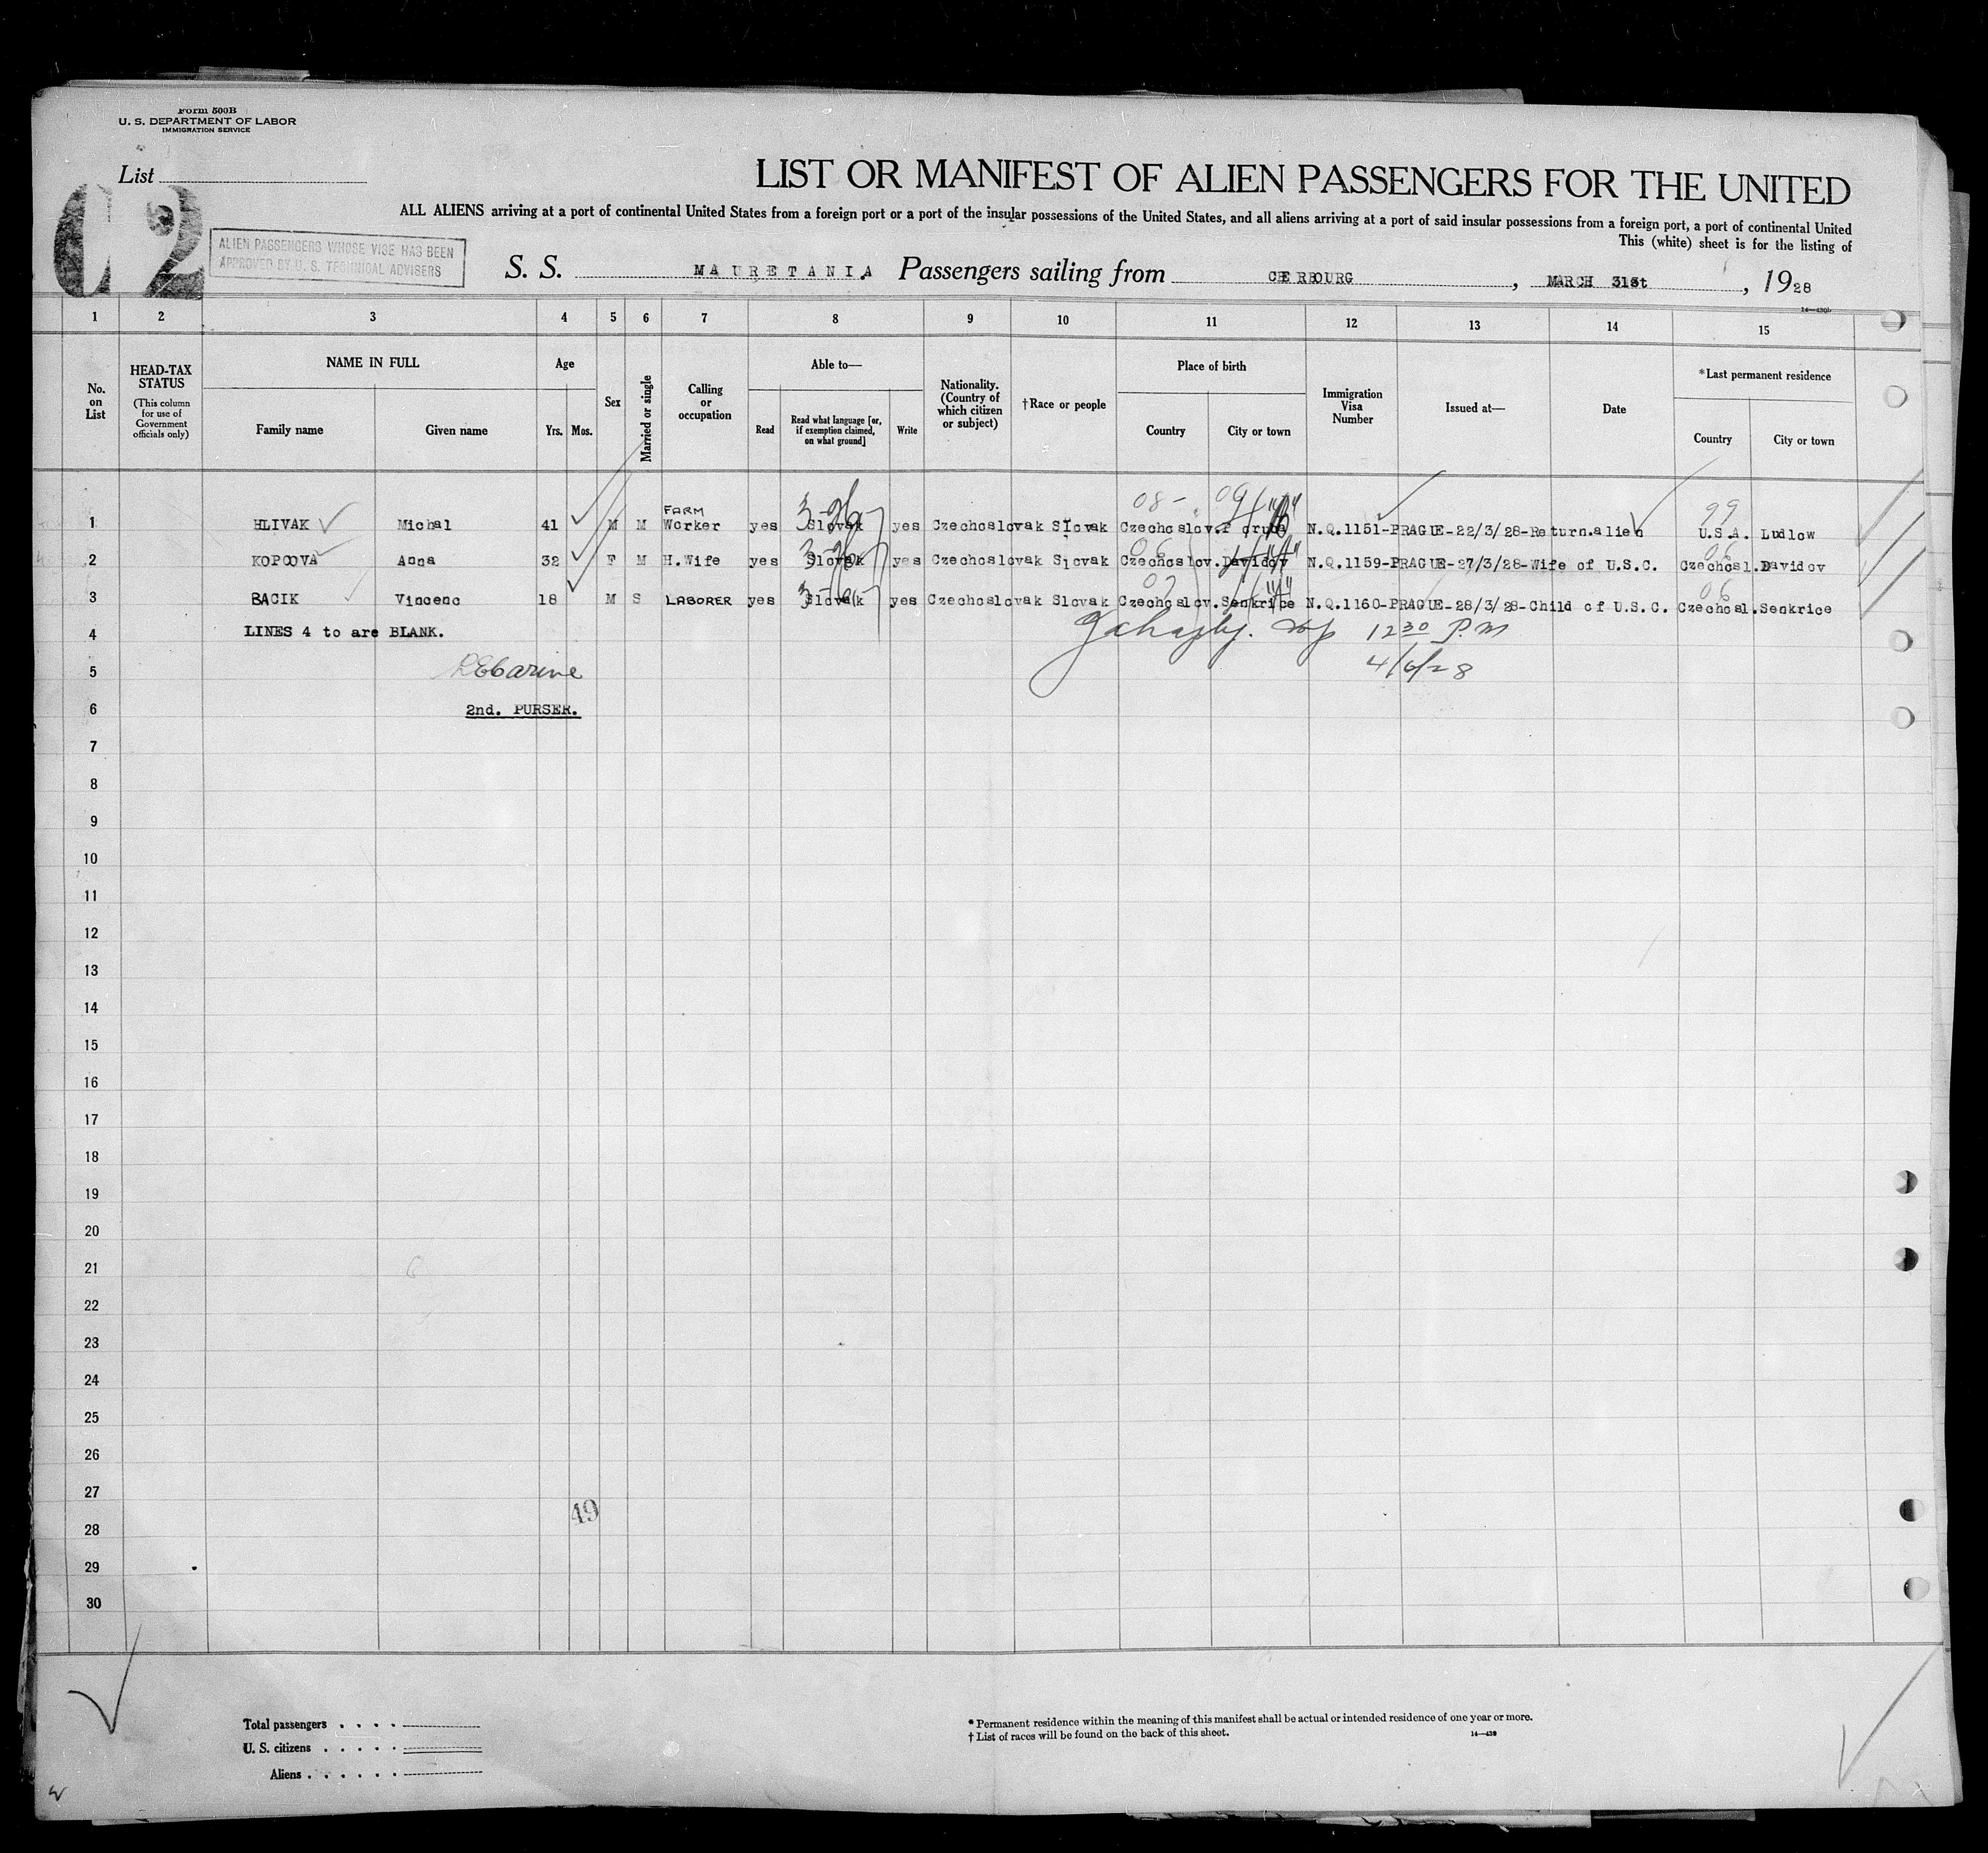 Form 500B
U. S. DEPARTMENT OF LABOR
IMMIGRATION SERVICE
List
LIST OR MANIFEST OF ALIEN PASSENGERS FOR THE UNITED
ALL ALIENS arriving at a port of continental United States from a foreign port or a port of the insular possessions of the United States, and all aliens arriving at a port of said insular possessions from a foreign port, a port of continental United
This (white) sheet is for the listing of
2
ALIEN PASSENGERS WHOSE VISE HAS BEEN
APPROVED BY U. S. TECHNICAL ADVISERS
S. S. MAURETANIA Passengers sailing from CHERBOURG, MARCH 31st, 1928
1 2 3 4 5 6 7 8 9 10 11 12 13 14 15
No. on List
HEAD-TAX STATUS
(This column for use of Government officials only)
NAME IN FULL
Family name Given name
Age
Yrs. Mos.
Sex
Married or single
Calling or occupation
Able to—
Read
Read what language [or, if exemption claimed, on what ground]
Write
Nationality. (Country of which citizen or subject)
†Race or people
Place of birth
Country City or town
Immigration Visa Number
Issued at—
Date
*Last permanent residence
Country City or town
08- 09 99
1 HLIVAK Michal 41 M M FARM Worker yes Slovak yes Czechoslovak Slovak Czechoslov. N.Q.1151-PRAGUE-22/3/28-Return.alien U.S.A. Ludlow
06 06
2 KOPCOVA Anna 32 F M H.Wife yes Slovak yes Czechoslovak Slovak Czechoslov. Davidov N.Q.1159-PRAGUE-27/3/28-Wife of U.S.C. Czechosl. Davidov
07 06
3 BACIK Vincenc 18 M S LABORER yes Slovak yes Czechoslovak Slovak Czechoslov. Senkrice N.Q.1160-PRAGUE-28/3/28-Child of U.S.C. Czechosl. Senkrice
4 LINES 4 to are BLANK.
12 30 P.M
5
4/6/28
6 2nd. PURSER.
7
8
9
10
11
12
13
14
15
16
17
18
19
20
21
22
23
24
25
26
27
49
28
29
30
Total passengers
U. S. citizens
Aliens
* Permanent residence within the meaning of this manifest shall be actual or intended residence of one year or more.
† List of races will be found on the back of this sheet.
14—430